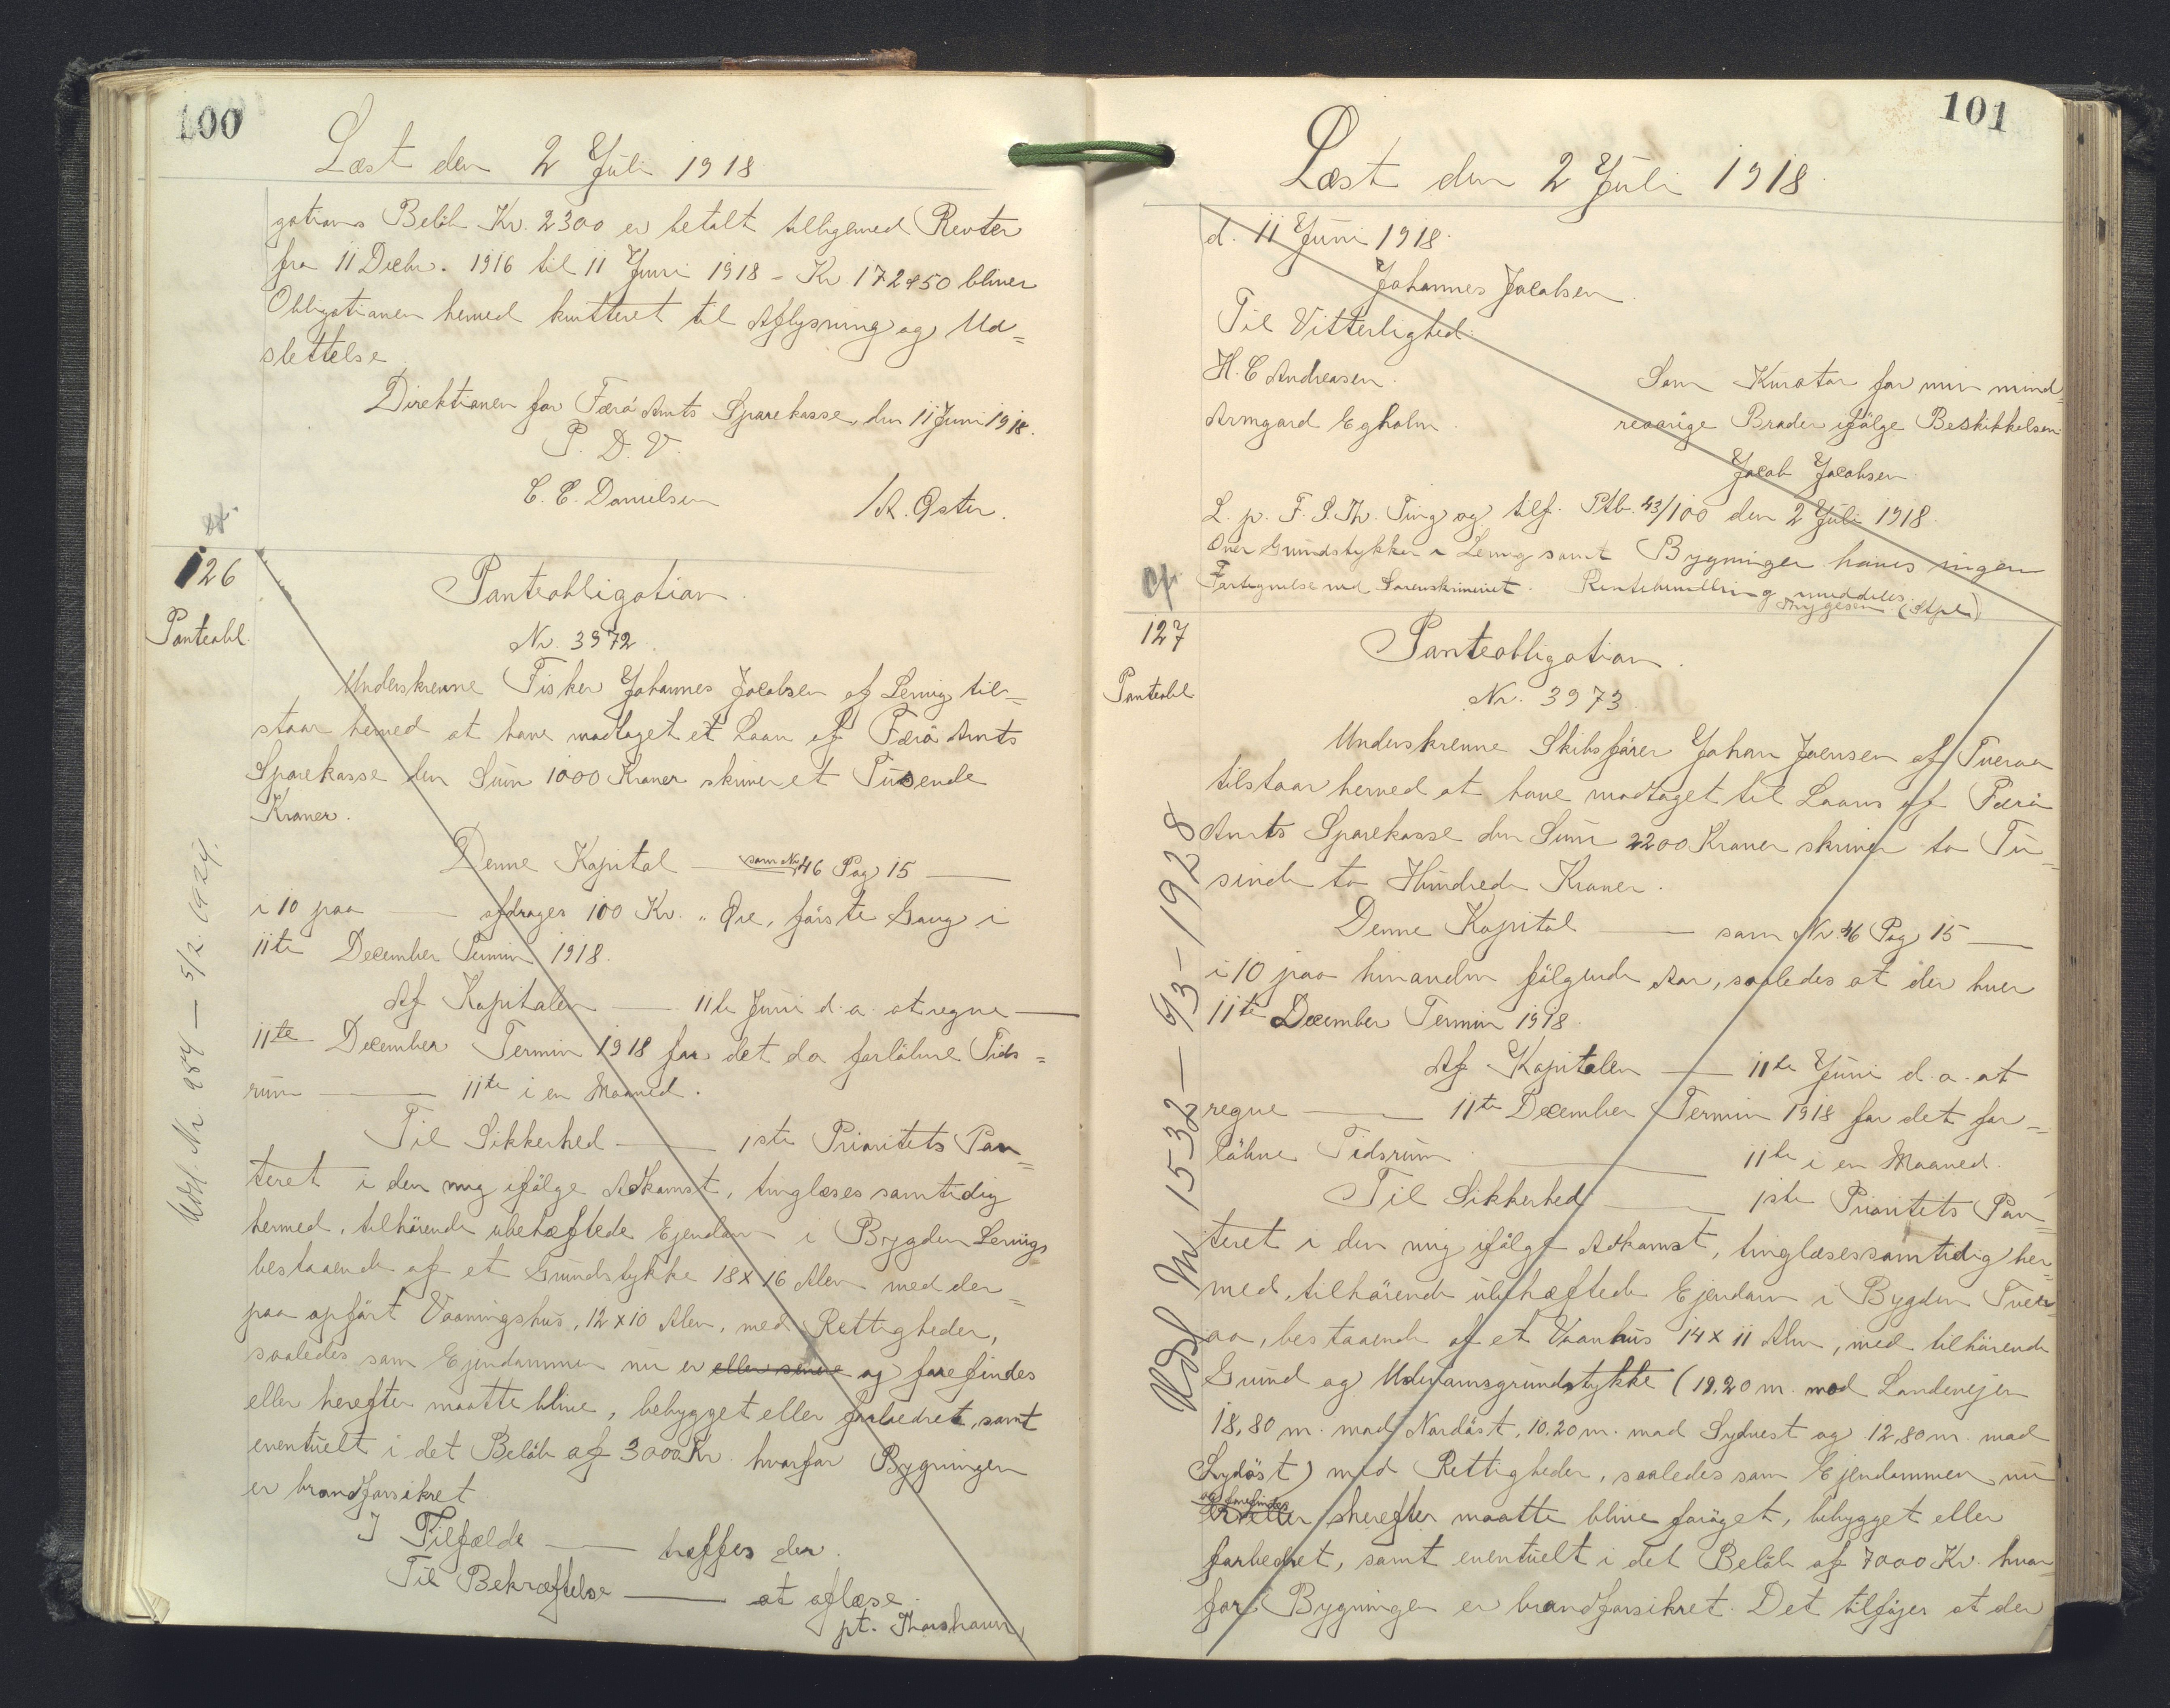 100
Læst den 2 Juli 1918
gations Beløb Kr. 2300 er betalt tilligemed Renter
fra 11 Decbr. 1916 til 11 Juni 1918 - Kr 172 50 bliver
Obligationen herved kvitteret til Aflysning og Ud=
slettelse
Direktionen for Færö Amts Sparekasse, den 11 Juni 1918.
P. D. V.
C. C. Danielsen
cf.
126
Panteobl.
Panteobligation.
Nr. 3972.
Underskrevne Fisker Johannes Jacobsen af Lervig til=
staar herved at have modtaget et Laan af Færö Amts
Sparekasse den Sum 1000 Kroner skriver et Tusende
Kroner.
Denne Kapital — som Nr 46 Pag 15 —
i 10 paa — afdrages 100 Kr. „ Øre, förste Gang i
11te December Termin 1918.
Af Kapitalen — 11te Juni d. a. at regne —
11te December Termin 1918 for det da forlöbne Tids=
rum — 11te i en Maaned.
Til Sikkerhed — 1ste Prioritets Pan=
teret i den mig ifölge Adkomst, tinglæses samtidig
hermed, tilhörende ubehæftede Ejendom i Bygden Lervig,
bestaaende af et Grundstykke 18 x 16 Alen med der=
paa opfört Vaaningshus, 12 x 10 Alen, med Rettigheder,
saaledes som Ejendommen nu er eller senere og forefindes
eller herefter maatte blive, bebygget eller forbedret, samt
eventuelt i det Beløb af 3000 Kr. hvorfor Bygningen
er brandforsikret
I Tilfælde — træffes der.
Til Bekræftelse — at aflæse.
pt. Thorshavn,
Udsl. Nr. 954 — 5/2. 1924.
101
Læst den 2 Juli 1918.
d. 11 Juni 1918.
Johannes Jacobsen.
Til Vitterlighed:
H. C Andreasen.
Armgard Egholm.
Som Kurator for min mind=
reaarige Broder ifölge Beskikkelsen
Jacob Jacobsen
L. p. F. S. Th. Ting og tilf. Ptb. 43/100 den 2 Juli 1918.
Over Grundstykker i Lervig samt Bygninger haves ingen
Fortegnelse ved Sorenskriveriet. Rentebemelling meddeles.
(Stpl)
cf
127
Panteobl
Panteobligation.
Nr. 3973.
Underskrevne Skibsförer Johan Joensen af Tveraa
tilstaar herved at have modtaget til Laans af Færö
Amts Sparekasse den Sum 2200 Kroner skriver to Tu=
sinde to Hundrede Kroner.
Denne Kapital — som Nr. 46 Pag 15 —
i 10 paa hinanden fölgende Aar, saaledes at der hver
11te December Termin 1918.
Af Kapitalen — 11te Juni d. a. at
regne — 11te December Termin 1918 for det for=
löbne Tidsrum — 11te i en Maaned.
Til Sikkerhed — 1ste Prioritets Pan=
teret i den mig ifölge Adkomst, tinglæses samtidig her=
med, tilhörende ubehæftede Ejendom i Bygden Tver=
aa, bestaaende af et Vaanhus 14 x 11 Alen, med tilhörende
Grund og Udenomsgrundstykke (19,20 m. mod Landevejen
18,80 m. mod Nordöst, 10,20 m. mod Sydvest og 12,80 m. mod
Sydöst) med Rettigheder, saaledes som Ejendommen nu
og forefindes
er eller herefter maatte blive foröget, bebygget eller
forbedret, samt eventuelt i det Beløb af 7000 Kr. hvor=
for Bygningen er brandforsikret. Det tilföjes at der
Udsl Nr 1532 — 9/3 - 1928